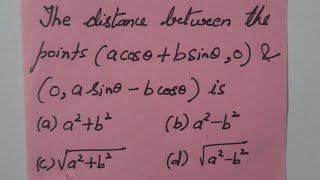 The distance between the
points (acosθ+bsinθ,0) &
(0, asinθ-bcosθ) is
(a) a²+b² (b) a²-b²
(c) √a²+b² (d) √a²-b²